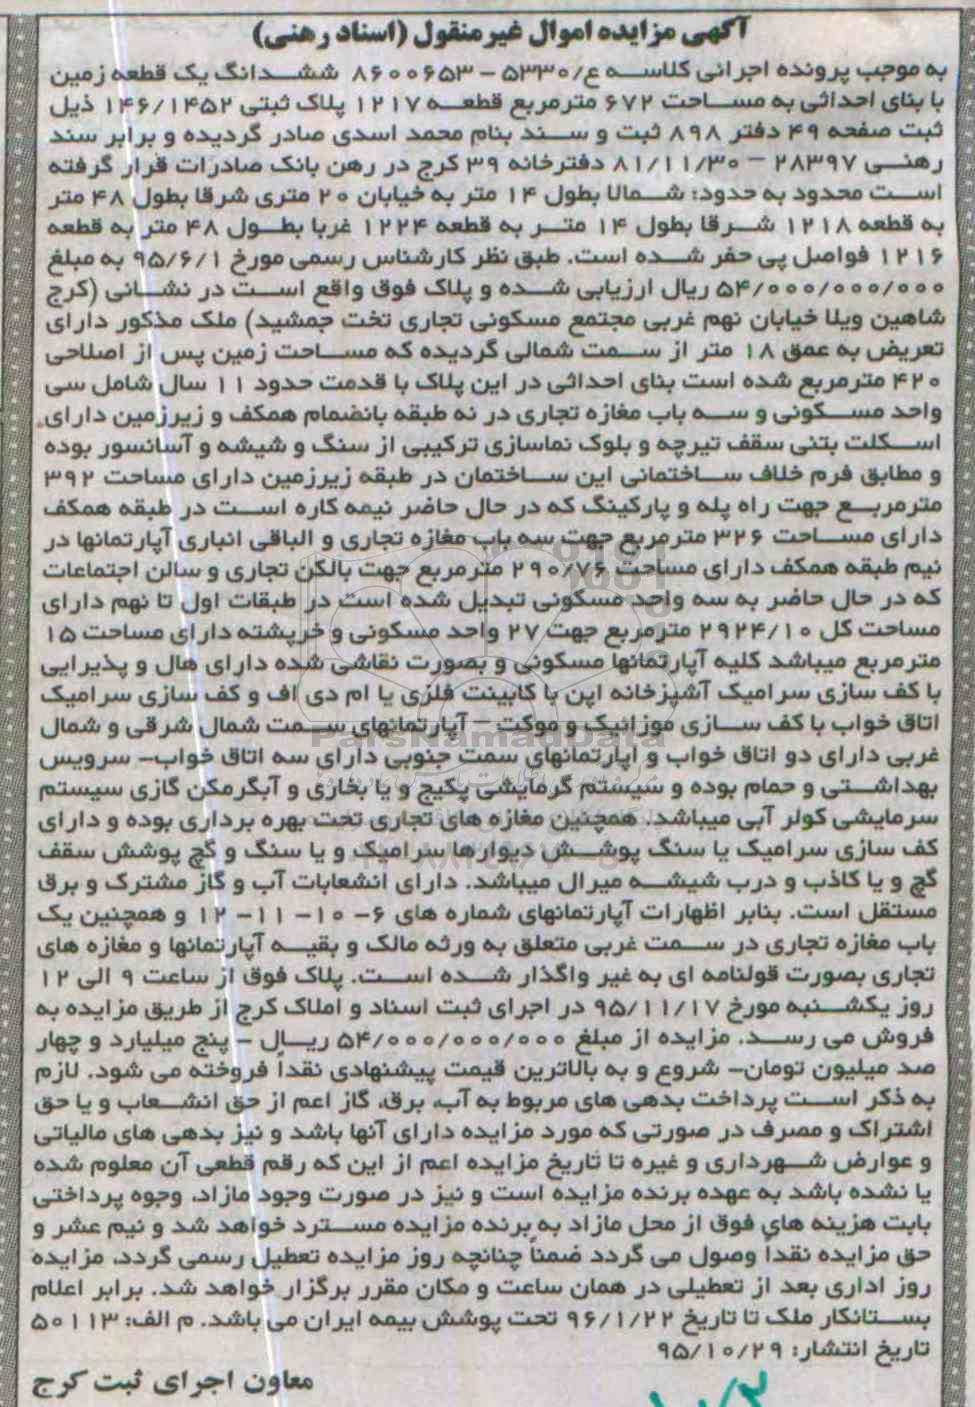 آگهی مزایده اموال غیرمنقول (اسناد رهنی)
به موجب پرونده اجرائی کلاسه ع/۵۳۳۰ – ۸۶۰۰۶۵۳ ششدانگ یک قطعه زمین
با بنای احداثی به مساحت ۶۷۲ مترمربع قطعه ۱۲۱۷ پلاک ثبتی ۱۴۶/۱۴۵۲ ذیل
ثبت صفحه ۴۹ دفتر ۸۹۸ ثبت و سند بنام محمد اسدی صادر گردیده و برابر سند
رهنی ۲۸۳۹۷ – ۸۱/۱۱/۳۰ دفترخانه ۳۹ کرج در رهن بانک صادرات قرار گرفته
است محدود به حدود: شمالا بطول ۱۴ متر به خیابان ۲۰ متری شرقا بطول ۴۸ متر
به قطعه ۱۲۱۸ شرقا بطول ۱۴ متر به قطعه ۱۲۲۴ غربا بطول ۴۸ متر به قطعه
۱۲۱۶ فواصل پی حفر شده است. طبق نظر کارشناس رسمی مورخ ۹۵/۶/۱ به مبلغ
۵۴/۰۰۰/۰۰۰/۰۰۰ ریال ارزیابی شده و پلاک فوق واقع است در نشانی (کرج
شاهین ویلا خیابان نهم غربی مجتمع مسکونی تجاری تخت جمشید) ملک مذکور دارای
تعریض به عمق ۱۸ متر از سمت شمالی گردیده که مساحت زمین پس از اصلاحی
۴۲۰ مترمربع شده است بنای احداثی در این پلاک با قدمت حدود ۱۱ سال شامل سی
واحد مسکونی و سه باب مغازه تجاری در نه طبقه بانضمام همکف و زیرزمین دارای
اسکلت بتنی سقف تیرچه و بلوک نماسازی ترکیبی از سنگ و شیشه و آسانسور بوده
و مطابق فرم خلاف ساختمانی این ساختمان در طبقه زیرزمین دارای مساحت ۳۹۲
مترمربع جهت راه پله و پارکینگ که در حال حاضر نیمه کاره است در طبقه همکف
دارای مساحت ۳۲۶ مترمربع جهت سه باب مغازه تجاری و الباقی انباری آپارتمانها در
نیم طبقه همکف دارای مساحت ۲۹۰/۷۶ مترمربع جهت بالکن تجاری و سالن اجتماعات
که در حال حاضر به سه واحد مسکونی تبدیل شده است در طبقات اول تا نهم دارای
مساحت کل ۲۹۲۴/۱۰ مترمربع جهت ۲۷ واحد مسکونی و خرپشته دارای مساحت ۱۵
مترمربع میباشد کلیه آپارتمانها مسکونی و بصورت نقاشی شده دارای هال و پذیرایی
با کف سازی سرامیک آشپزخانه اپن با کابینت فلزی یا ام دی اف و کف سازی سرامیک
اتاق خواب با کف سازی موزائیک و موکت – آپارتمانهای سمت شمال شرقی و شمال
غربی دارای دو اتاق خواب و آپارتمانهای سمت جنوبی دارای سه اتاق خواب– سرویس
بهداشتی و حمام بوده و سیستم گرمایشی پکیج و یا بخاری و آبگرمکن گازی سیستم
سرمایشی کولر آبی میباشد. همچنین مغازه های تجاری تحت بهره برداری بوده و دارای
کف سازی سرامیک یا سنگ پوشش دیوارها سرامیک و یا سنگ و گچ پوشش سقف
گچ و یا کاذب و درب شیشه میرال میباشد. دارای انشعابات آب و گاز مشترک و برق
مستقل است. بنابر اظهارات آپارتمانهای شماره های ۶– ۱۰– ۱۱– ۱۲ و همچنین یک
باب مغازه تجاری در سمت غربی متعلق به ورثه مالک و بقیه آپارتمانها و مغازه های
تجاری بصورت قولنامه ای به غیر واگذار شده است. پلاک فوق از ساعت ۹ الی ۱۲
روز یکشنبه مورخ ۹۵/۱۱/۱۷ در اجرای ثبت اسناد و املاک کرج از طریق مزایده به
فروش می رسد. مزایده از مبلغ ۵۴/۰۰۰/۰۰۰/۰۰۰ ریال – پنج میلیارد و چهار
صد میلیون تومان– شروع و به بالاترین قیمت پیشنهادی نقداً فروخته می شود. لازم
به ذکر است پرداخت بدهی های مربوط به آب، برق، گاز اعم از حق انشعاب و یا حق
اشتراک و مصرف در صورتی که مورد مزایده دارای آنها باشد و نیز بدهی های مالیاتی
و عوارض شهرداری و غیره تا تاریخ مزایده اعم از این که رقم قطعی آن معلوم شده
یا نشده باشد به عهده برنده مزایده است و نیز در صورت وجود مازاد، وجوه پرداختی
بابت هزینه های فوق از محل مازاد به برنده مزایده مسترد خواهد شد و نیم عشر و
حق مزایده نقداً وصول می گردد ضمناً چنانچه روز مزایده تعطیل رسمی گردد، مزایده
روز اداری بعد از تعطیلی در همان ساعت و مکان مقرر برگزار خواهد شد. برابر اعلام
بستانکار ملک تا تاریخ ۹۶/۱/۲۲ تحت پوشش بیمه ایران می باشد. م الف: ۵۰۱۱۳
تاریخ انتشار: ۹۵/۱۰/۲۹
معاون اجرای ثبت کرج
ParsNamadData